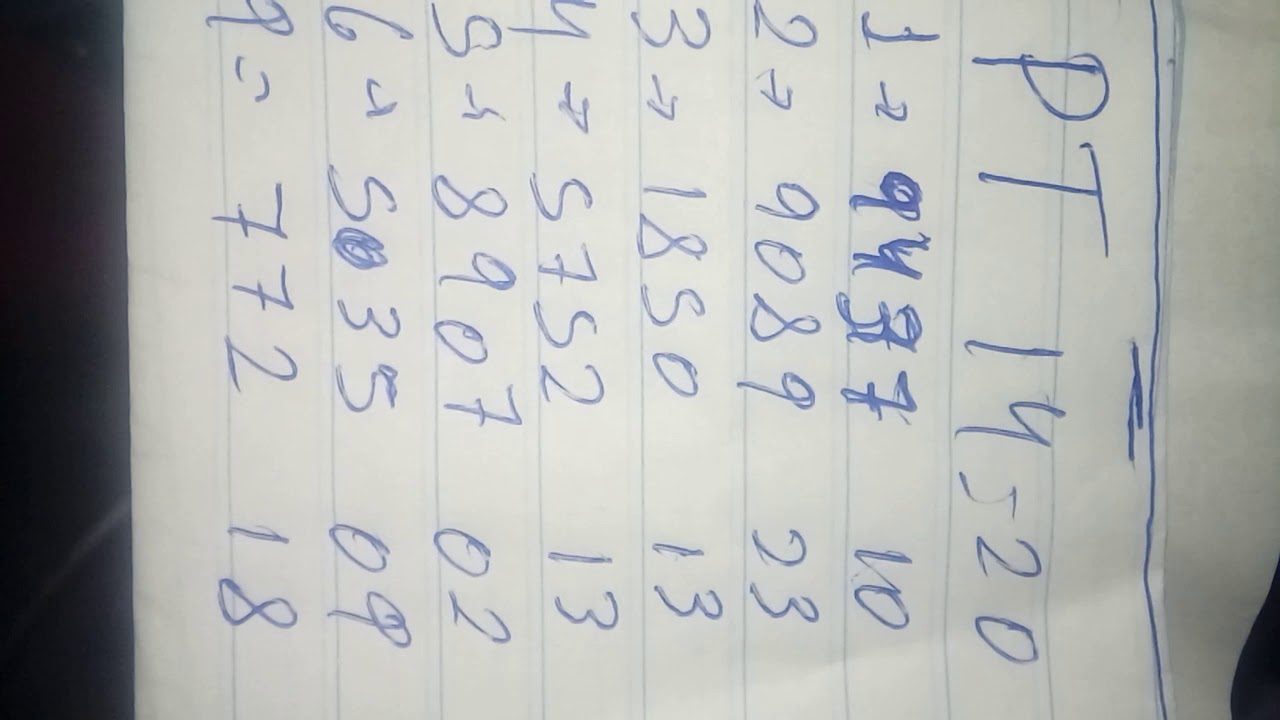 PT 14520
1 → 9477 10
2 → 9089 23
3 → 1850 13
4 → 5752 13
5 " 8907 02
6 " 5035 09
7 = 772 18